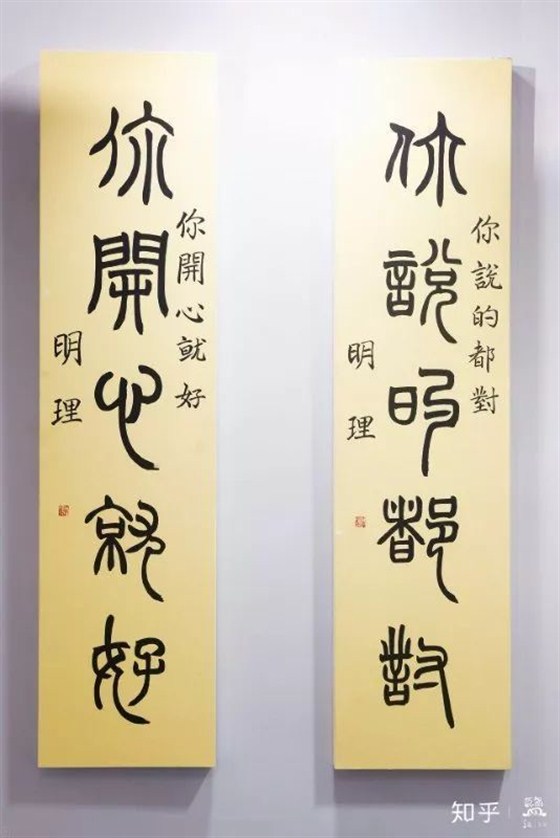 你說的都對
你說的都對
明理
你開心就好
你開心就好
明理
知乎